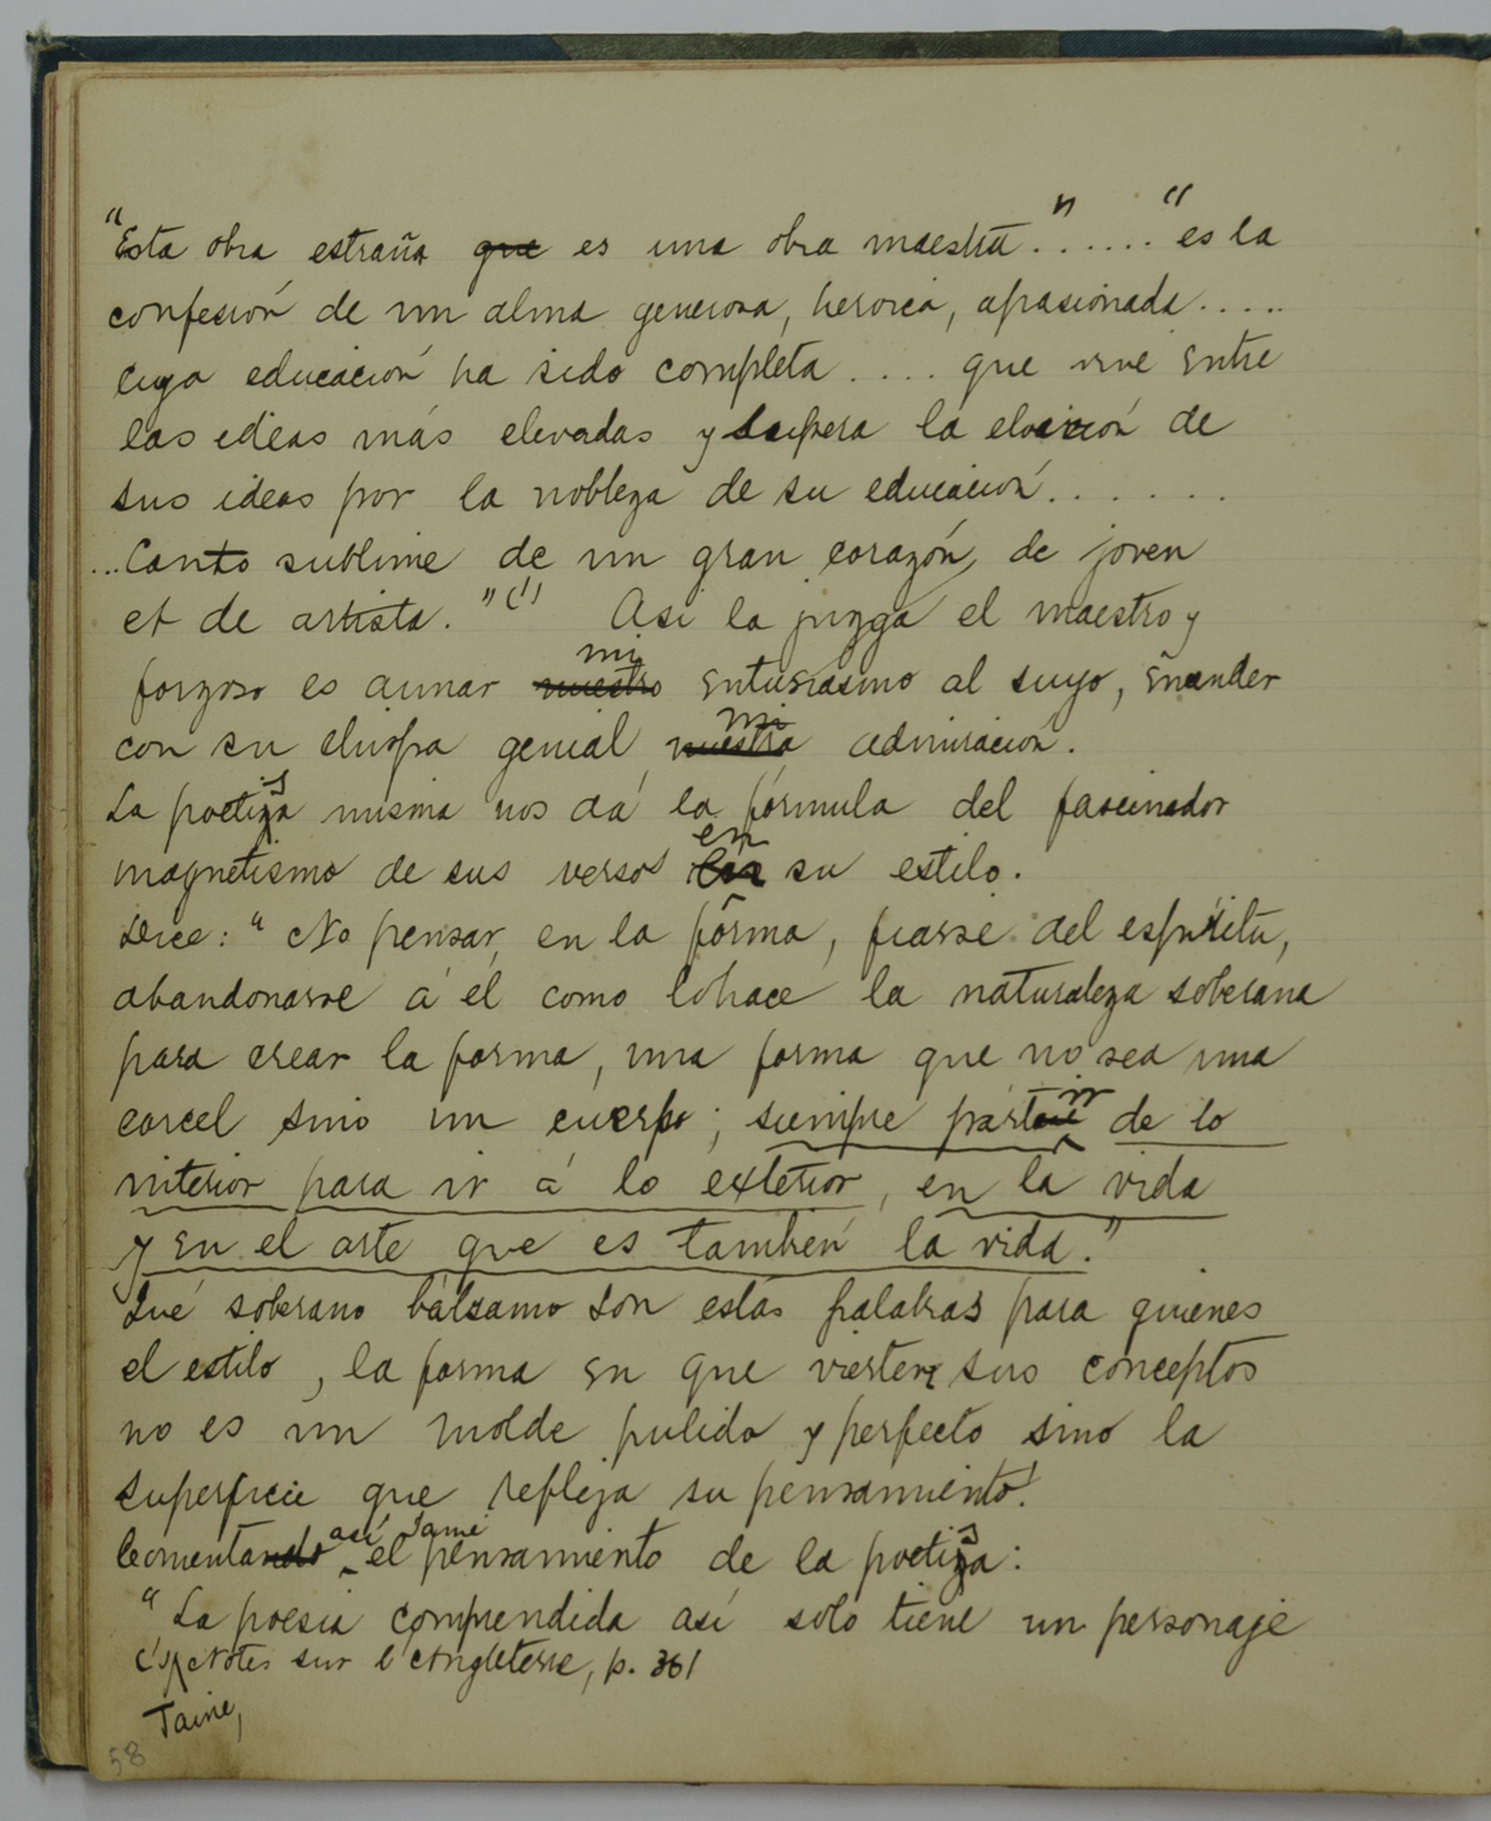 "Esta obra estraña que es una obra maestra"...... "es la
confesión de un alma generosa, heroica, apasionada.....
cuya educación ha sido completa .... que vive entre
las ideas más elevadas y supera la elvación de
sus ideas por la nobleza de su educación.......
...Canto sublime de un gran corazón, de joven
et de artista." (1) Asi la juzga el maestro y
forzoso es aunar nuestro mi entusiasmo al suyo, encender
con su chispa genial, nuestra mi admiración.
La poetiza s misma nos dá la fórmula del fascinador
magnetismo de sus versos en su estilo.
Dice: "No pensar, en la forma, fiarse del espíritu,
abandonarse á él como lo hace la naturaleza soberana
para crear la forma, una forma que no sea una
carcel sino un cuerpo; siempre partir de lo
interior para ir á lo exterior, en la vida
y en el arte que es también la vida."
Qué soberano bálsamo son estas palabras para quienes
el estilo, la forma en que vierten sus conceptos
no es un molde pulido y perfecto sino la
superficie que refleja su pensamiento!
Comentando así Taine el pensamiento de la poetiza s:
"La poesia comprendida así solo tiene un personaje
(1) Notes sur l'Angleterre, p. 361
Taine,
58